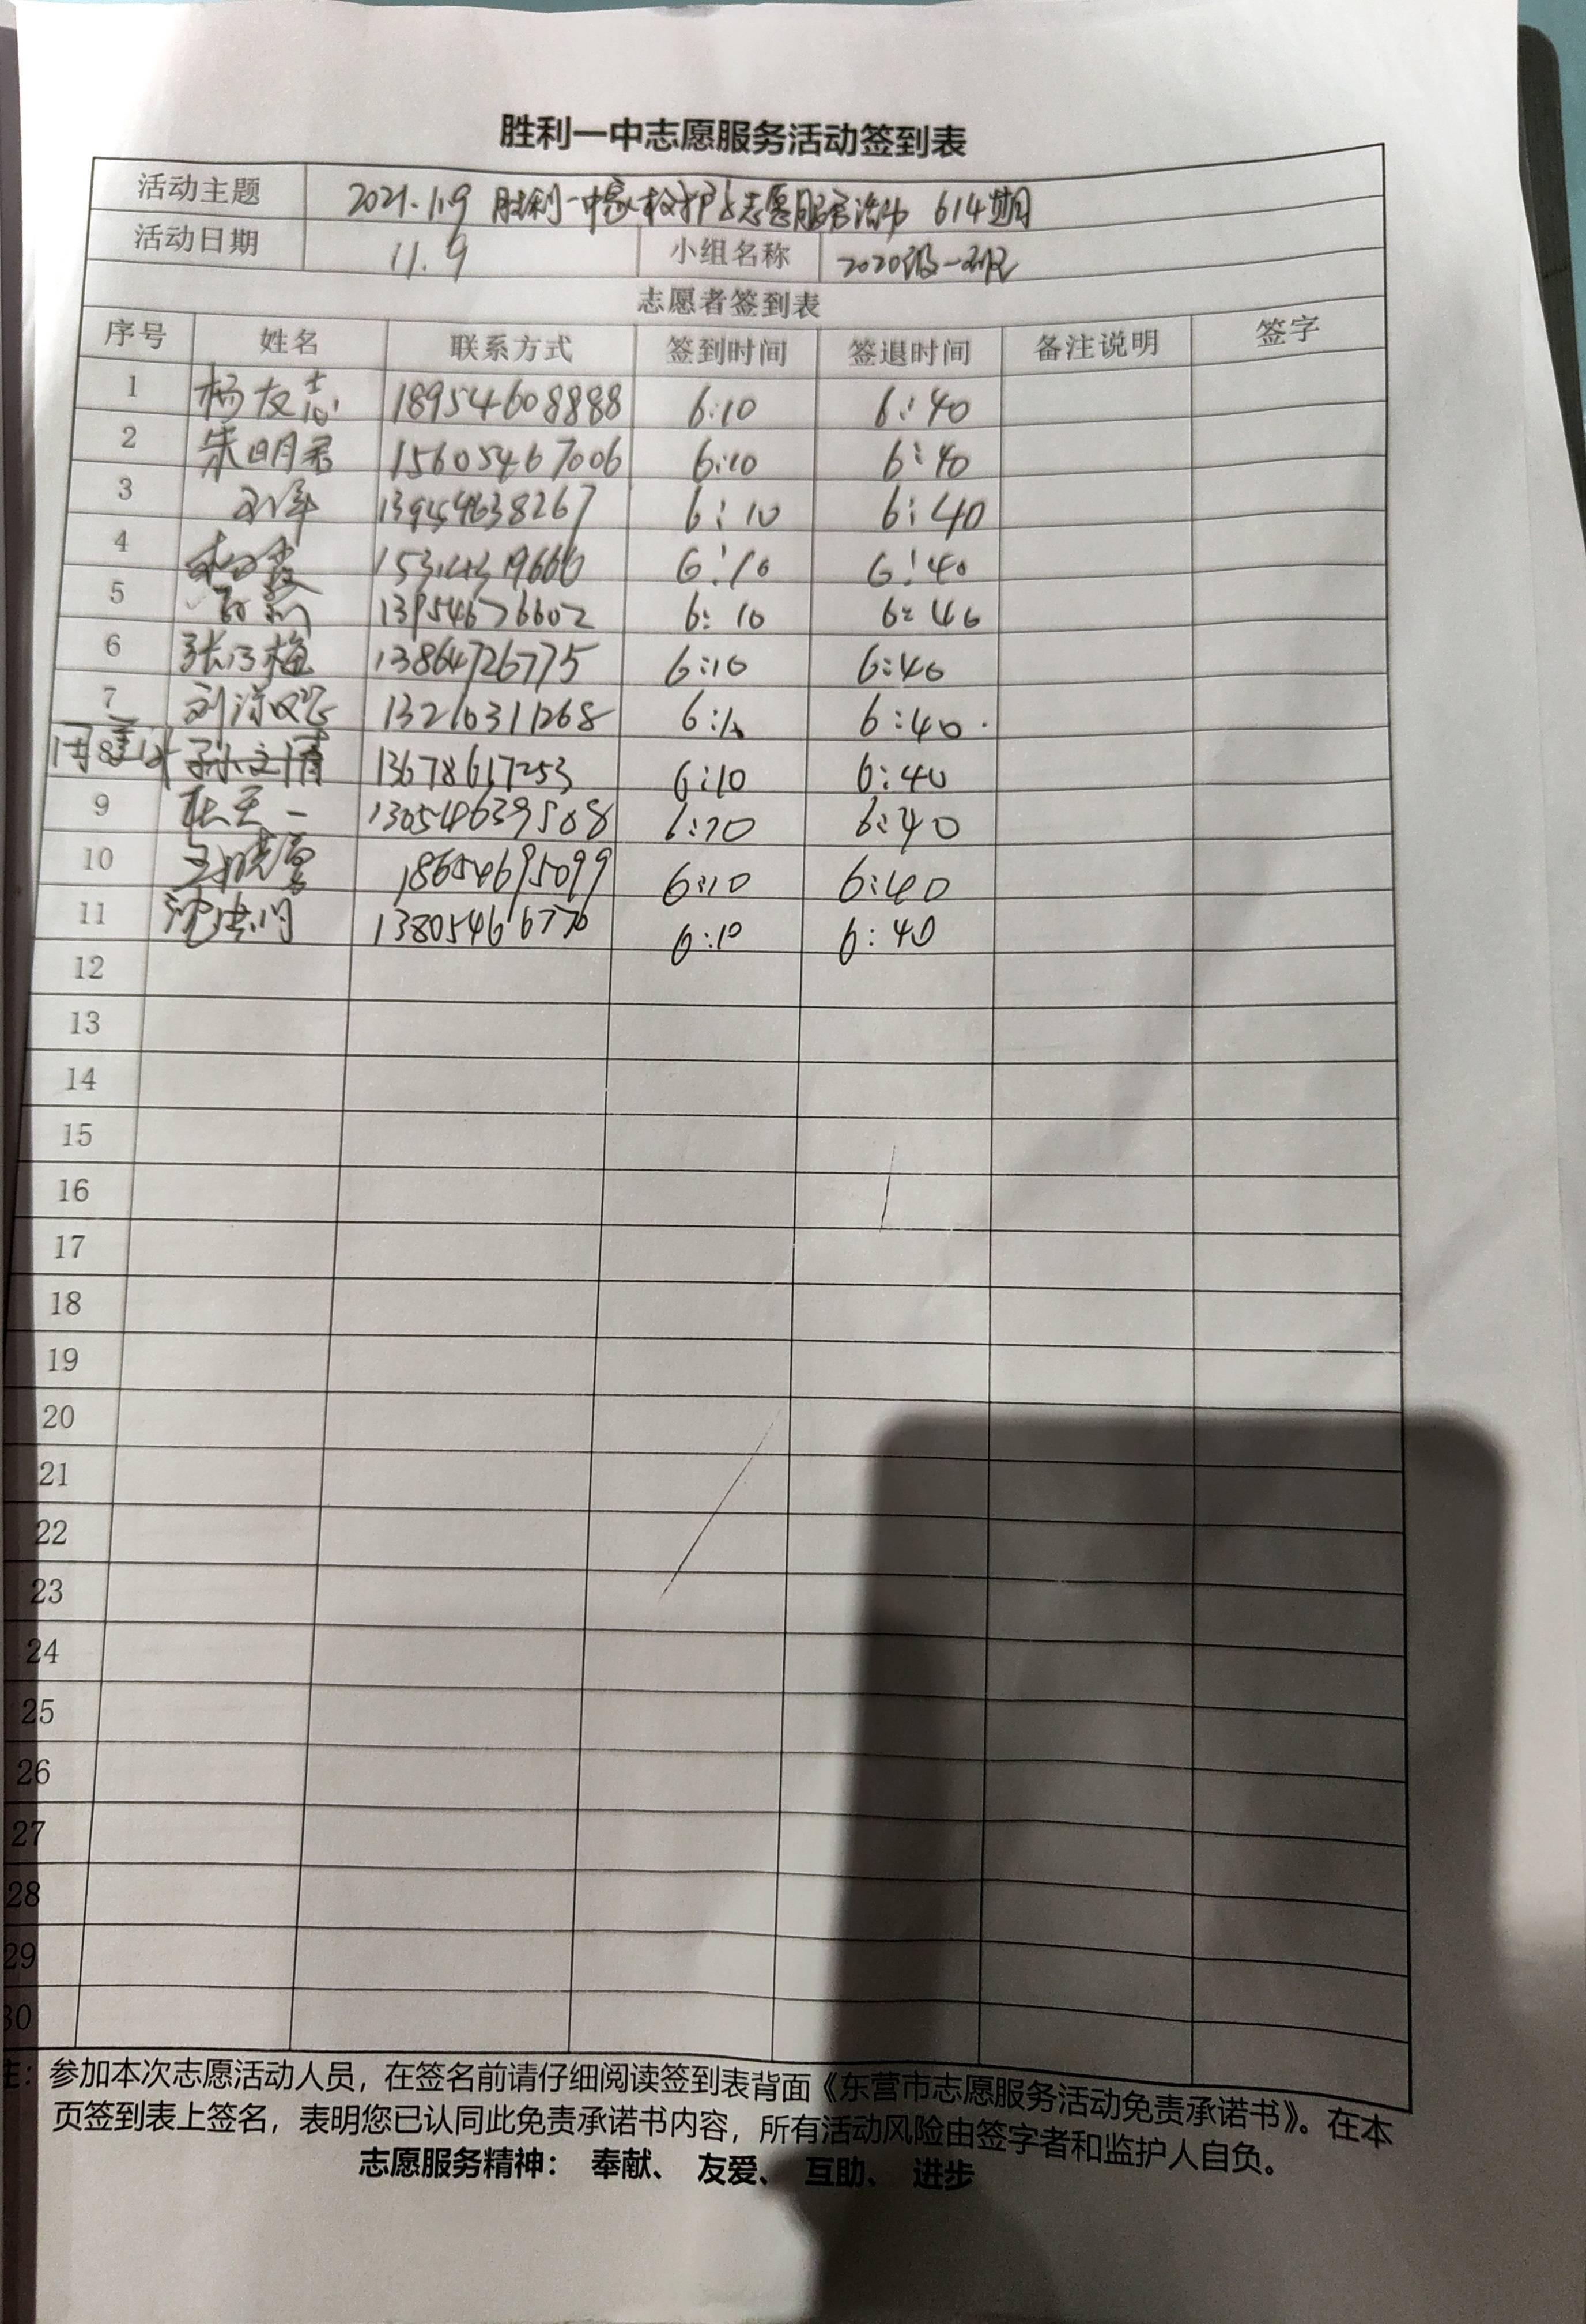 胜利一中志愿服务活动签到表
活动主题 2021.11.9 胜利一中家校护志愿服务活动 614期
活动日期 11.9 小组名称 2020级一班
志愿者签到表
序号 姓名 联系方式 签到时间 签退时间 备注说明 签字
1 杨友志 18954608888 6:10 6:40
2 朱明君 15605467006 6:10 6:40
3 13954638267 6:10 6:40
4 6:10 6:40
5 13954676602 6:10 6:40
6 13864726775 6:10 6:40
7 13210311268 6:10 6:40
8 孙文倩 13678617253 6:10 6:40
9 13054639508 6:10 6:40
10 18654695099 6:10 6:40
11 13805466770 6:10 6:40
12
13
14
15
16
17
18
19
20
21
22
23
24
25
26
27
28
29
30
注：参加本次志愿活动人员，在签名前请仔细阅读签到表背面《东营市志愿服务活动免责承诺书》。在本
页签到表上签名，表明您已认同此免责承诺书内容，所有活动风险由签字者和监护人自负。
志愿服务精神： 奉献、 友爱、 互助、 进步